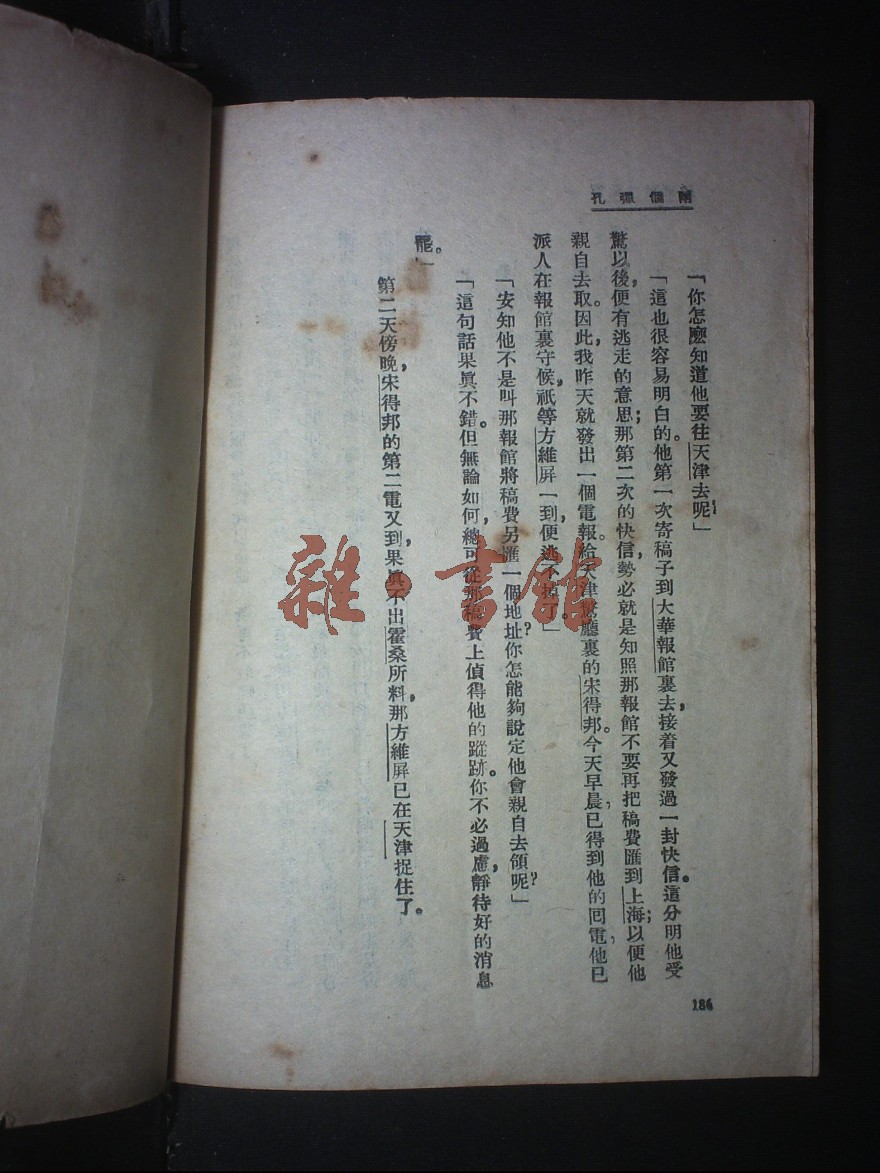 兩個彈孔
「你怎麽知道他要往天津去呢?」
「這也很容易明白的。他第一次寄稿子到大華報館裏去,接着又發過一封快信。這分明他受
驚以後,便有逃走的意思;那第二次的快信,勢必就是知照那報館不要再把稿費匯到上海;以便他
親自去取。因此,我昨天就發出一個電報給天津警廳裏的宋得邦。今天早晨,已得到他的回電,他已
派人在報館裏守候,祇等方維屏一到,便逃不掉了。」
「安知他不是叫那報館將稿費另匯一個地址?你怎能夠說定他會親自去領呢?」
「這句話果眞不錯。但無論如何,總可從那稿費上偵得他的蹤跡。你不必過慮,靜待好的消息
罷。」
第二天傍晚,宋得邦的第二電又到,果眞不出霍桑所料,那方維屏已在天津捉住了。
186
雜·書館